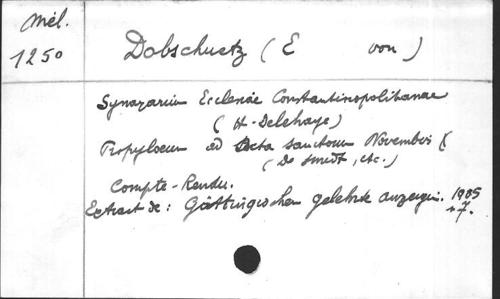 Mél.
1250
Dobschuetz (E von)
Synaxarium Ecclesiae Constantinopolitanae
(H. Delehaye)
Propylaeum ad Acta Sanctorum Novembris
(De Smedt, etc.)
Compte-Rendu.
Extrait de: Göttingischen gelehrte anzeigen. 1905
n. 7.